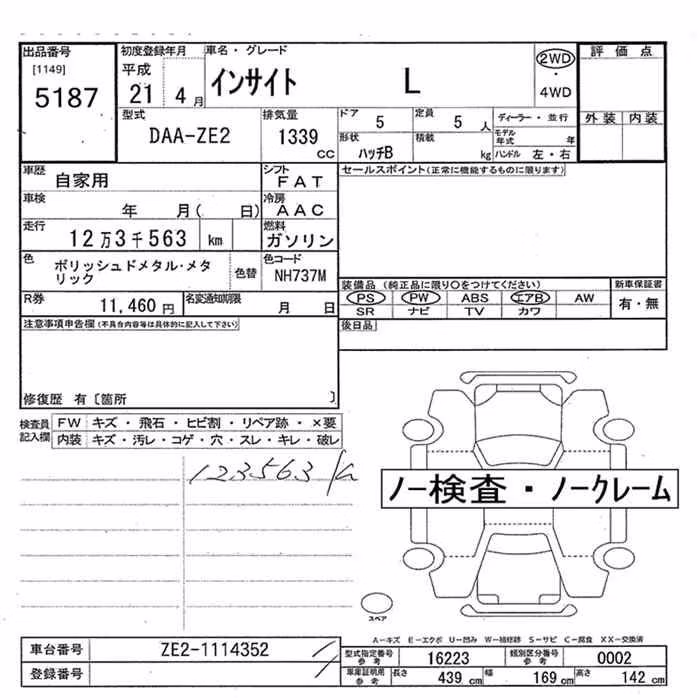 出品番号
[1149]
5187
初度登録年月
平成
21 4月
車名・グレード
インサイト L
2WD
・
4WD
評価点
外装 内装
型式
DAA-ZE2
排気量
1339
CC
ドア 5
定員 5 人
ディーラー・並行
モデル年式 年
形状
ハッチB
積載 kg
ハンドル 左・右
車歴
自家用
シフト
FAT
セールスポイント(正常に機能するものに限ります)
車検
年 月( 日)
冷房
AAC
走行
12万3千563 km
燃料
ガソリン
色
ポリッシュドメタル・メタリック
色替
色コード
NH737M
装備品(純正品に限り○をつけてください)
新車保証書
PS PW ABS エアB AW
有・無
SR ナビ TV カワ
R券
11,460 円
名変通知期限
月 日
注意事項申告欄(不具合内容等は具体的に記入して下さい)
後日品
修復歴 有〔箇所 〕
検査員記入欄
FW キズ・飛石・ヒビ割・リペア跡・×要
内装 キズ・汚レ・コゲ・穴・スレ・キレ・破レ
123563
ノー検査・ノークレーム
スペア
A-キズ E-エクボ U-凹み W-補修跡 S-サビ C-腐食 XX-交換済
車台番号
ZE2-1114352
登録番号
型式指定番号参考
16223
類別区分番号参考
0002
車庫証明用参考
長さ 439 cm
幅 169 cm
高さ 142 cm